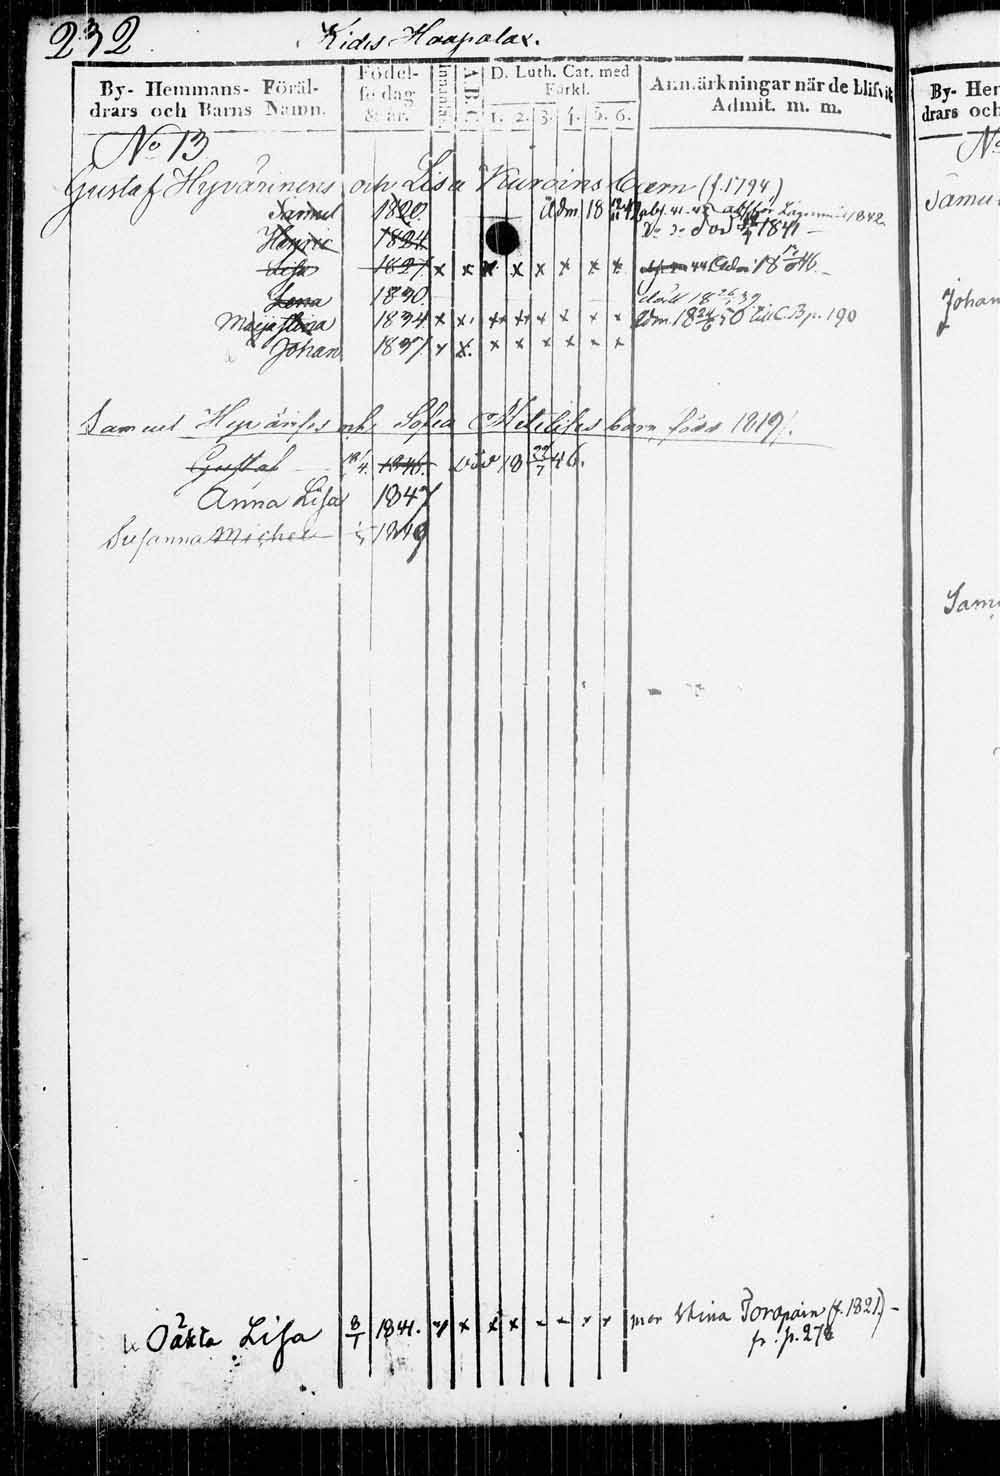 232 Kides Haapalax.
By- Hemmans- Föräl-
drars och Barns Namn.
Födel-
sedag
& år.
Innanläs.
A.B.C.
D. Luth. Cat. med
Förkl.
1. 2. 3. 4. 5. 6.
Anmärkningar när de blifvit
Admit. m. m.
No 13
Gustaf Hyvärinens och Lisa Kuroins barn (f. 1794)
Samuel 1820. Adm 18 42 abs. 41-42
Henric 1824 död 1841
Lisa 1827. x x x x x x x x Adm 18 46
Lena 1830. död 18
Maja Stina 1834 x x x x x x x x Adm. 18 50 till C.B. p. 190
Johan 1837 x x x x x x x x
Samuel Hyvärises och Sofia barn, född 1819/.
Gustaf 1846. död 18 22/7 46.
Anna Lisa 1847
Susanna Michel 1849
Oäkta Lisa 8/1 1841. x x x x mor Stina Torapain (f. 1821.)
fr. p. 278
By- Hem
drars och
No
Samuel
Johan
Samu